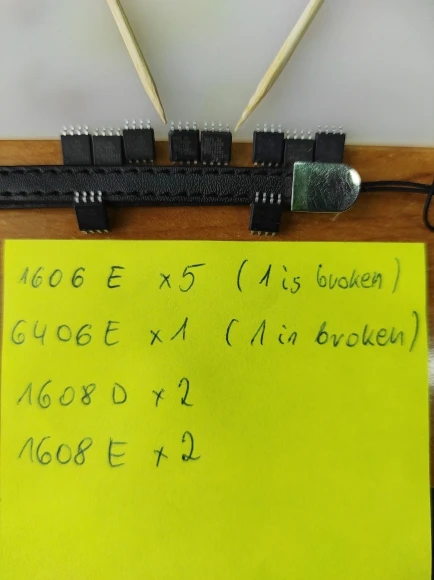 1606 E x5 (1 is broken)
6406 E x1 (1 in broken)
1608 D x2
1608 E x2